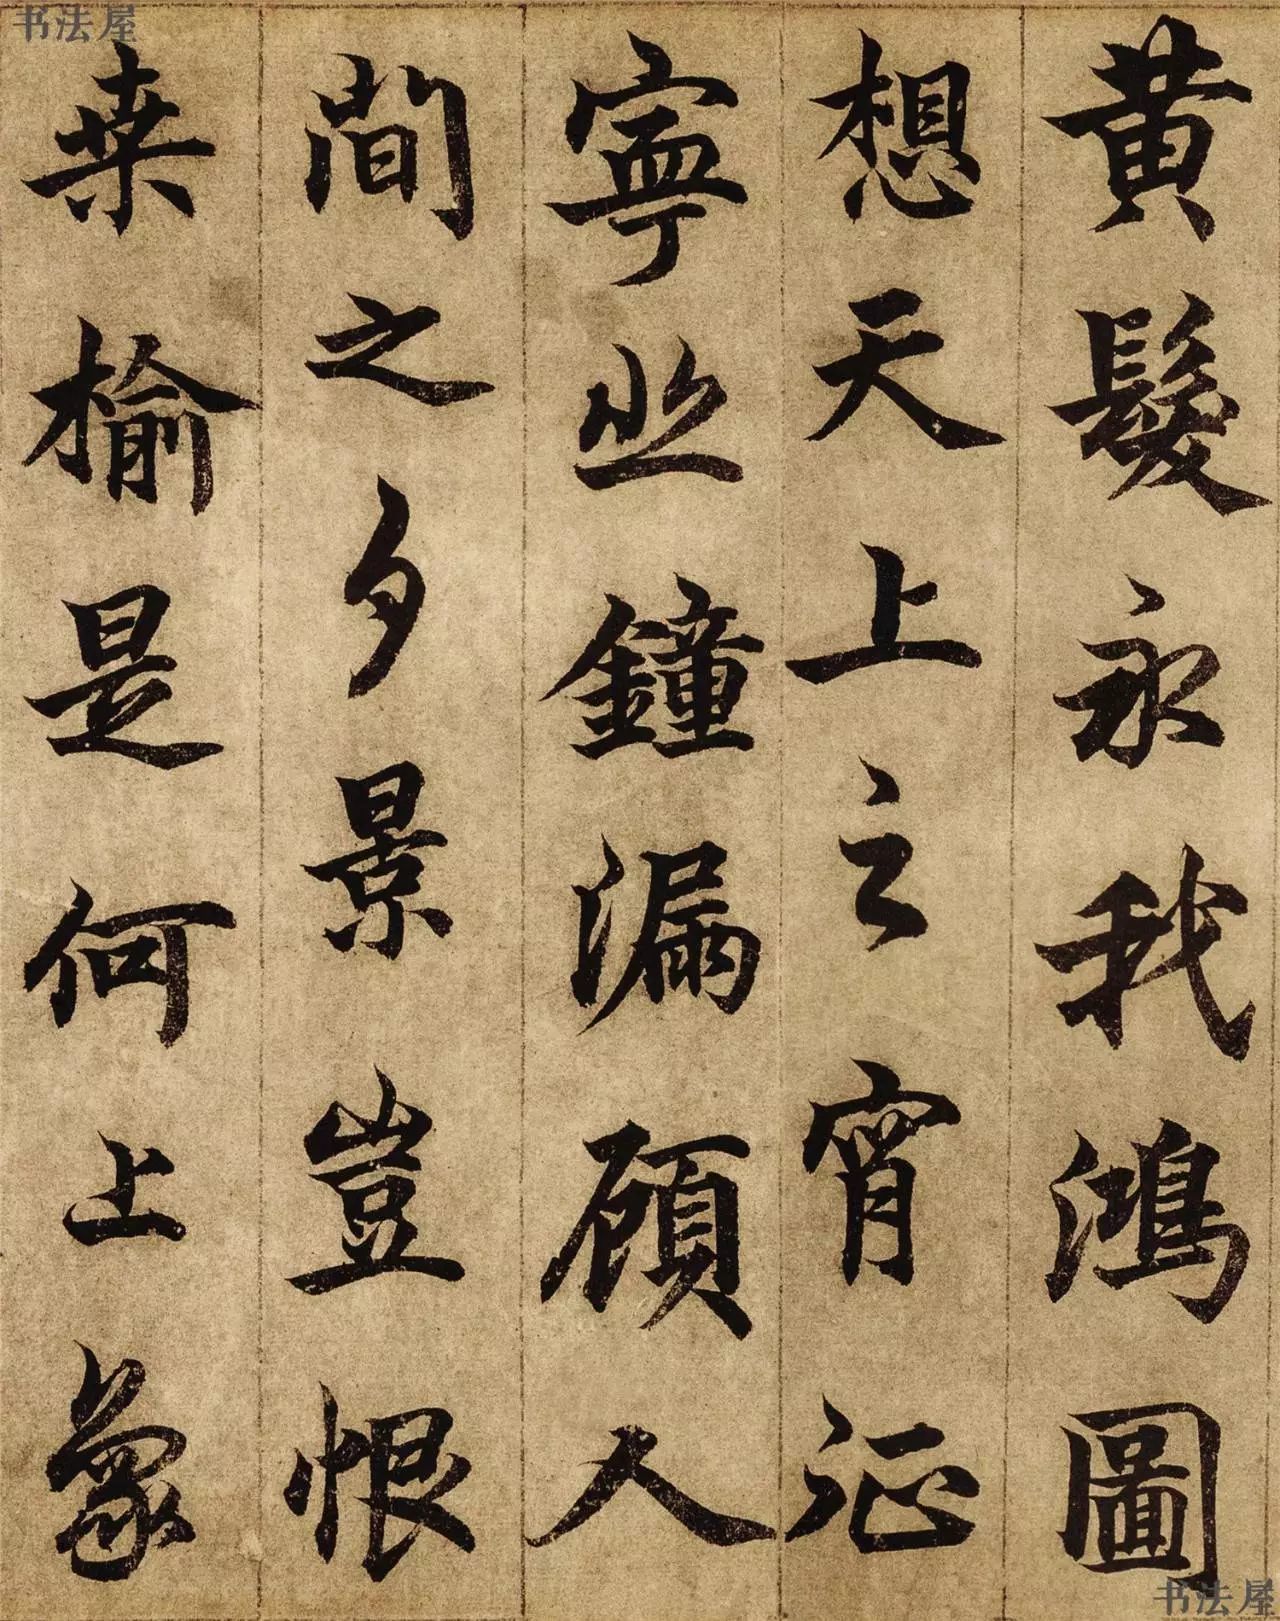 书法屋
黄髮永我鴻圖
想天上之宵征
寧鐘漏顧人
間之夕景豈恨
桒榆是何上象
书法屋